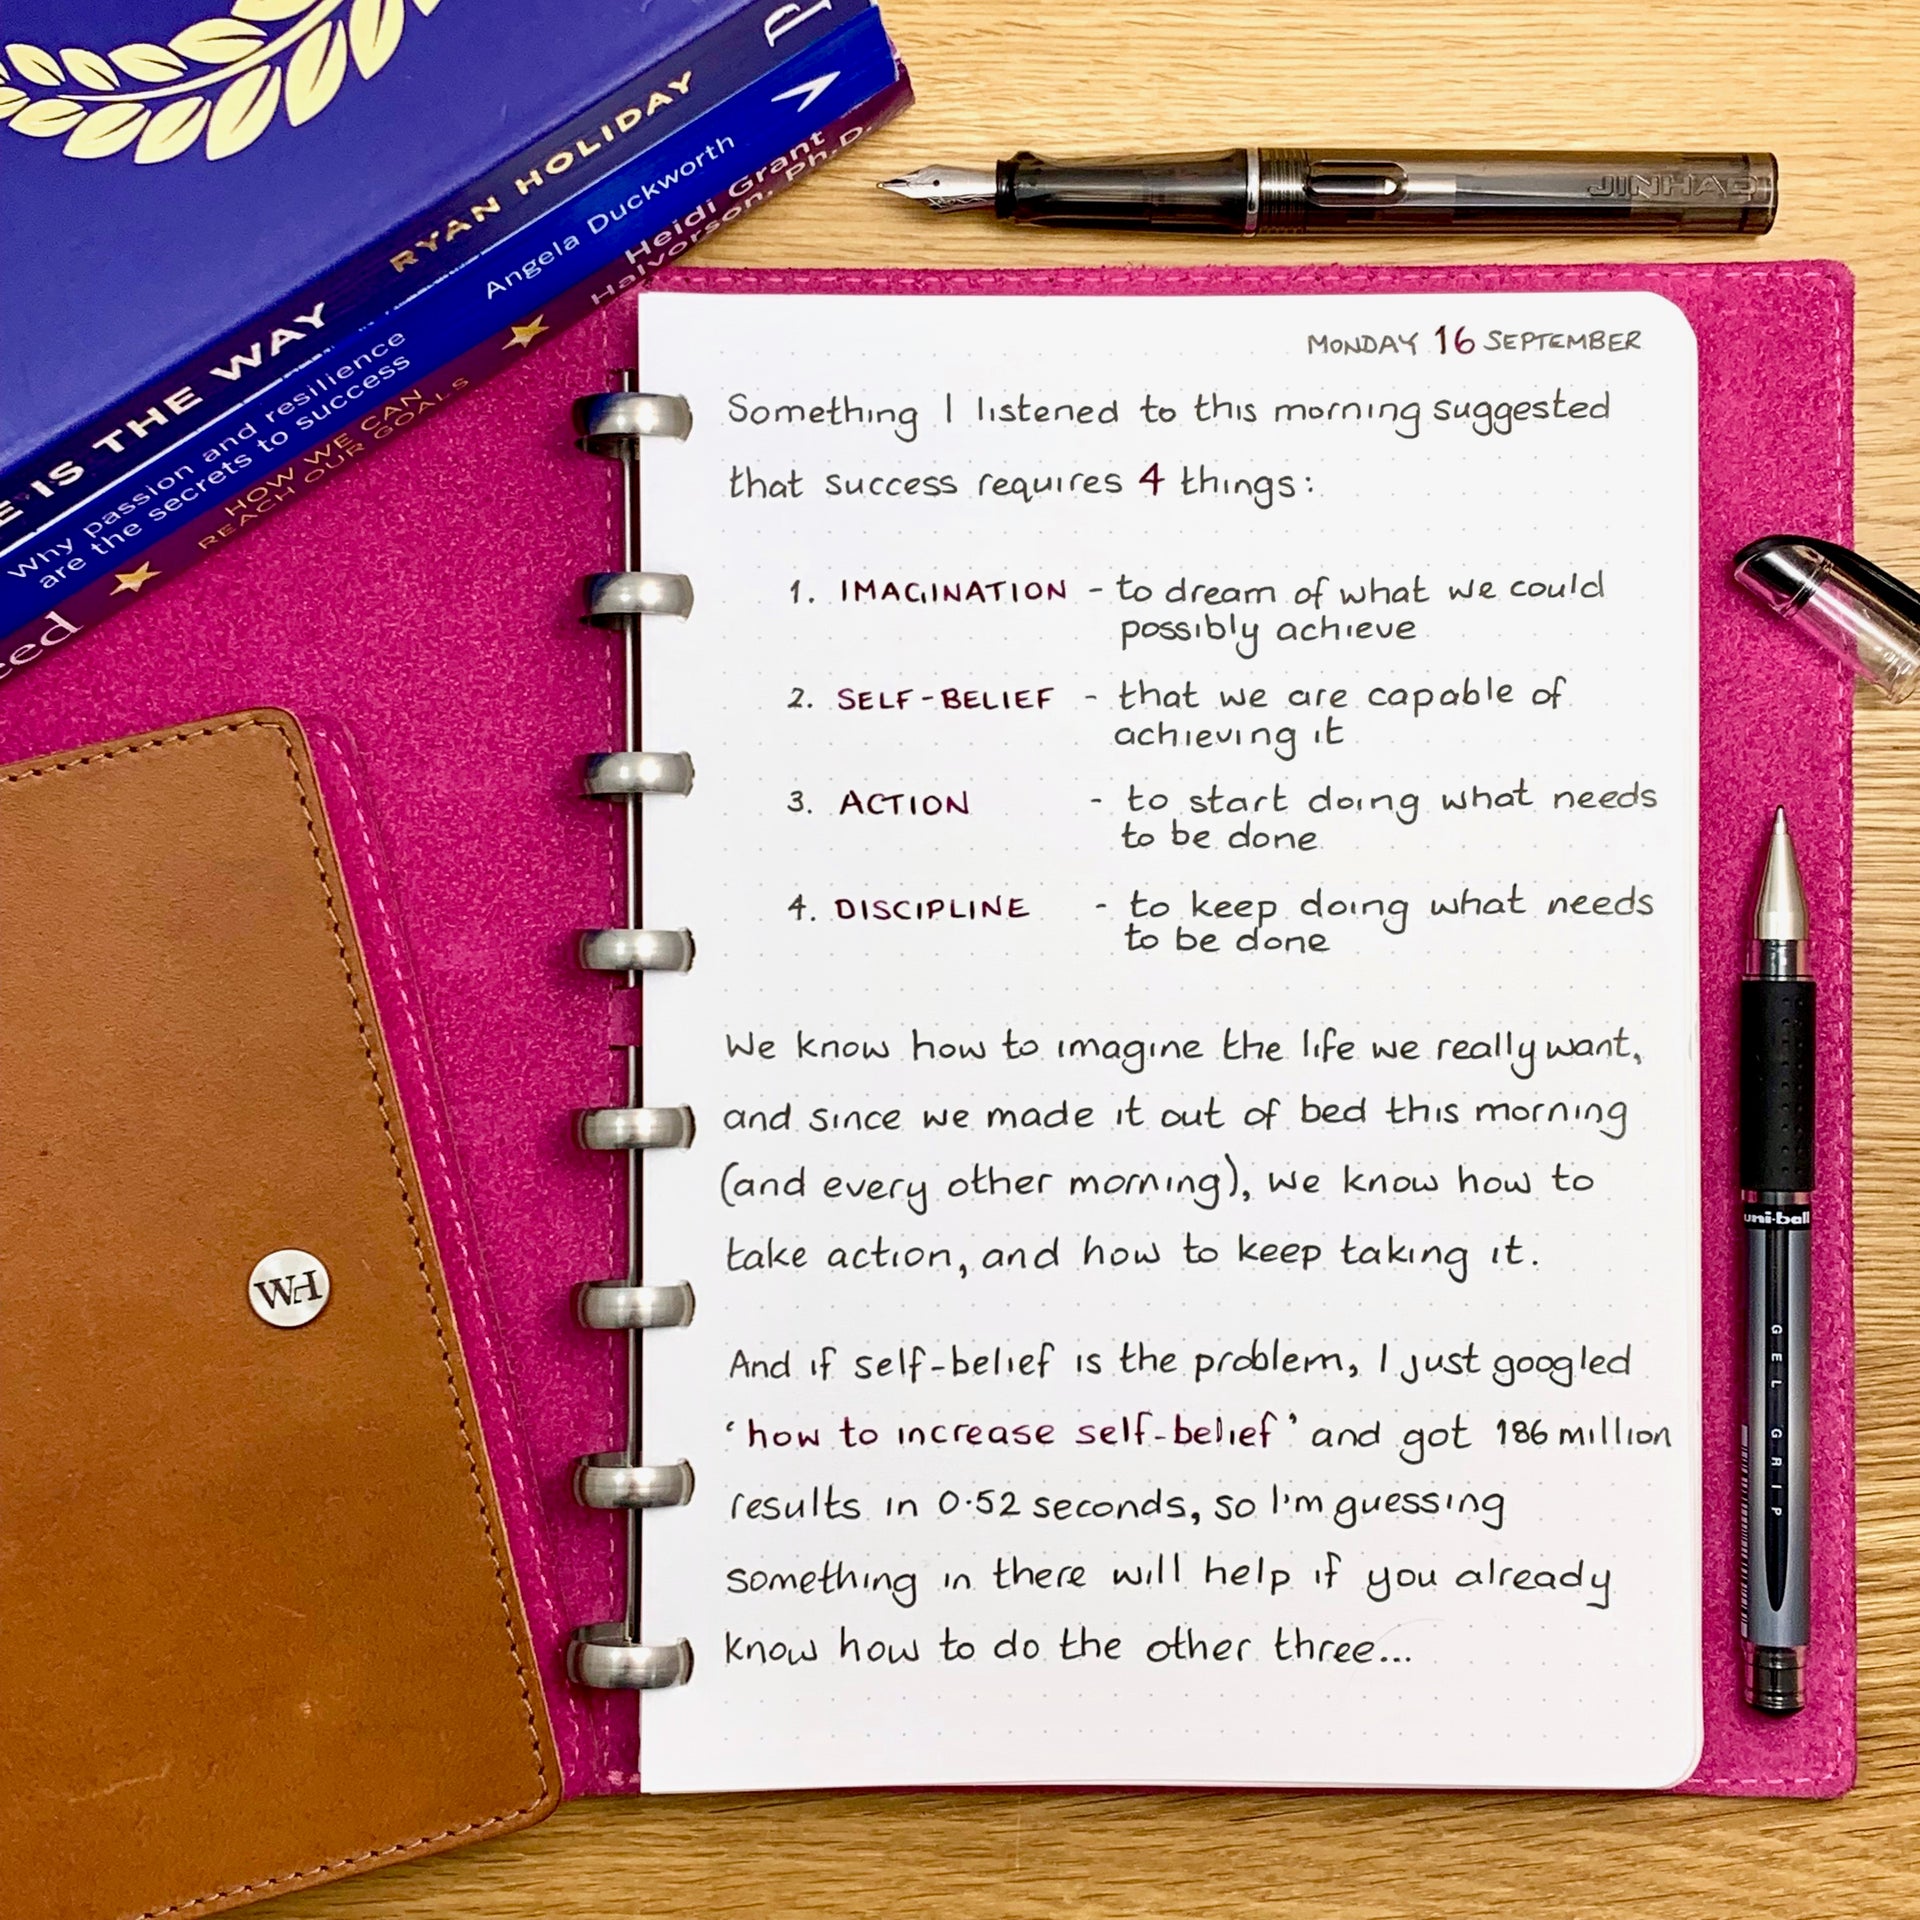 RYAN HOLIDAY
IS THE WAY
Angela Duckworth
Why passion and resilience
are the secrets to success
Heidi Grant
Halvorson, Ph.D.
HOW WE CAN
REACH OUR GOALS
eed
JINHAO
MONDAY 16 SEPTEMBER
Something I listened to this morning suggested
that success requires 4 things:
1. IMAGINATION - to dream of what we could
possibly achieve
2. SELF-BELIEF - that we are capable of
achieving it
3. ACTION - to start doing what needs
to be done
4. DISCIPLINE - to keep doing what needs
to be done
We know how to imagine the life we really want,
and since we made it out of bed this morning
(and every other morning), we know how to
take action, and how to keep taking it.
And if self-belief is the problem, I just googled
'how to increase self-belief' and got 186 million
results in 0.52 seconds, so I'm guessing
something in there will help if you already
know how to do the other three...
WH
uni-ball
GEL GRIP